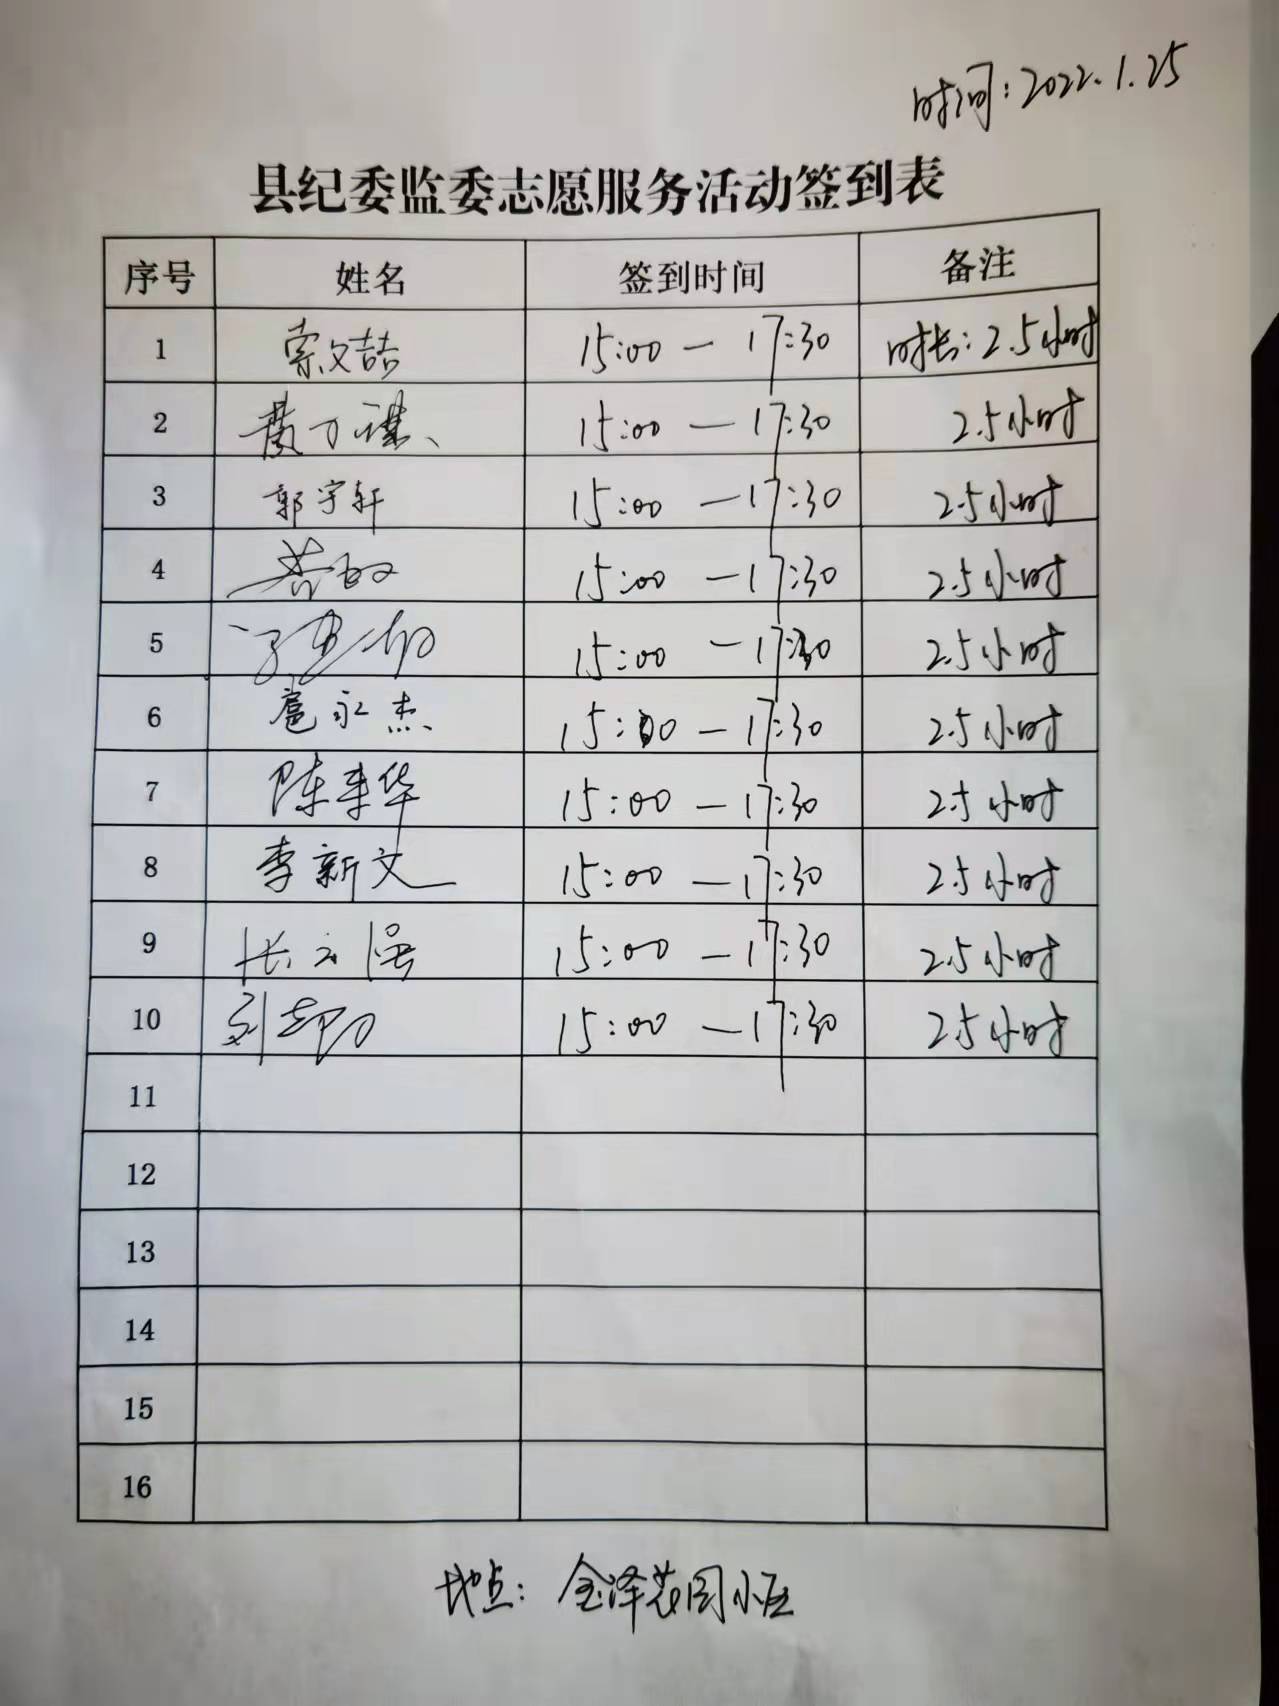 时间:2022.1.25
县纪委监委志愿服务活动签到表
序号 姓名 签到时间 备注
1 索文喆 15:00 — 17:30 时长:2.5小时
2 15:00 — 17:30 2.5小时
3 郭宇轩 15:00 — 17:30 2.5小时
4 15:00 — 17:30 2.5小时
5 15:00 — 17:30 2.5小时
6 扈永杰 15:00 — 17:30 2.5小时
7 陈来华 15:00 — 17:30 2.5小时
8 李新文 15:00 — 17:30 2.5小时
9 张立强 15:00 — 17:30 2.5小时
10 15:00 — 17:30 2.5小时
11
12
13
14
15
16
地点:金泽花园小区